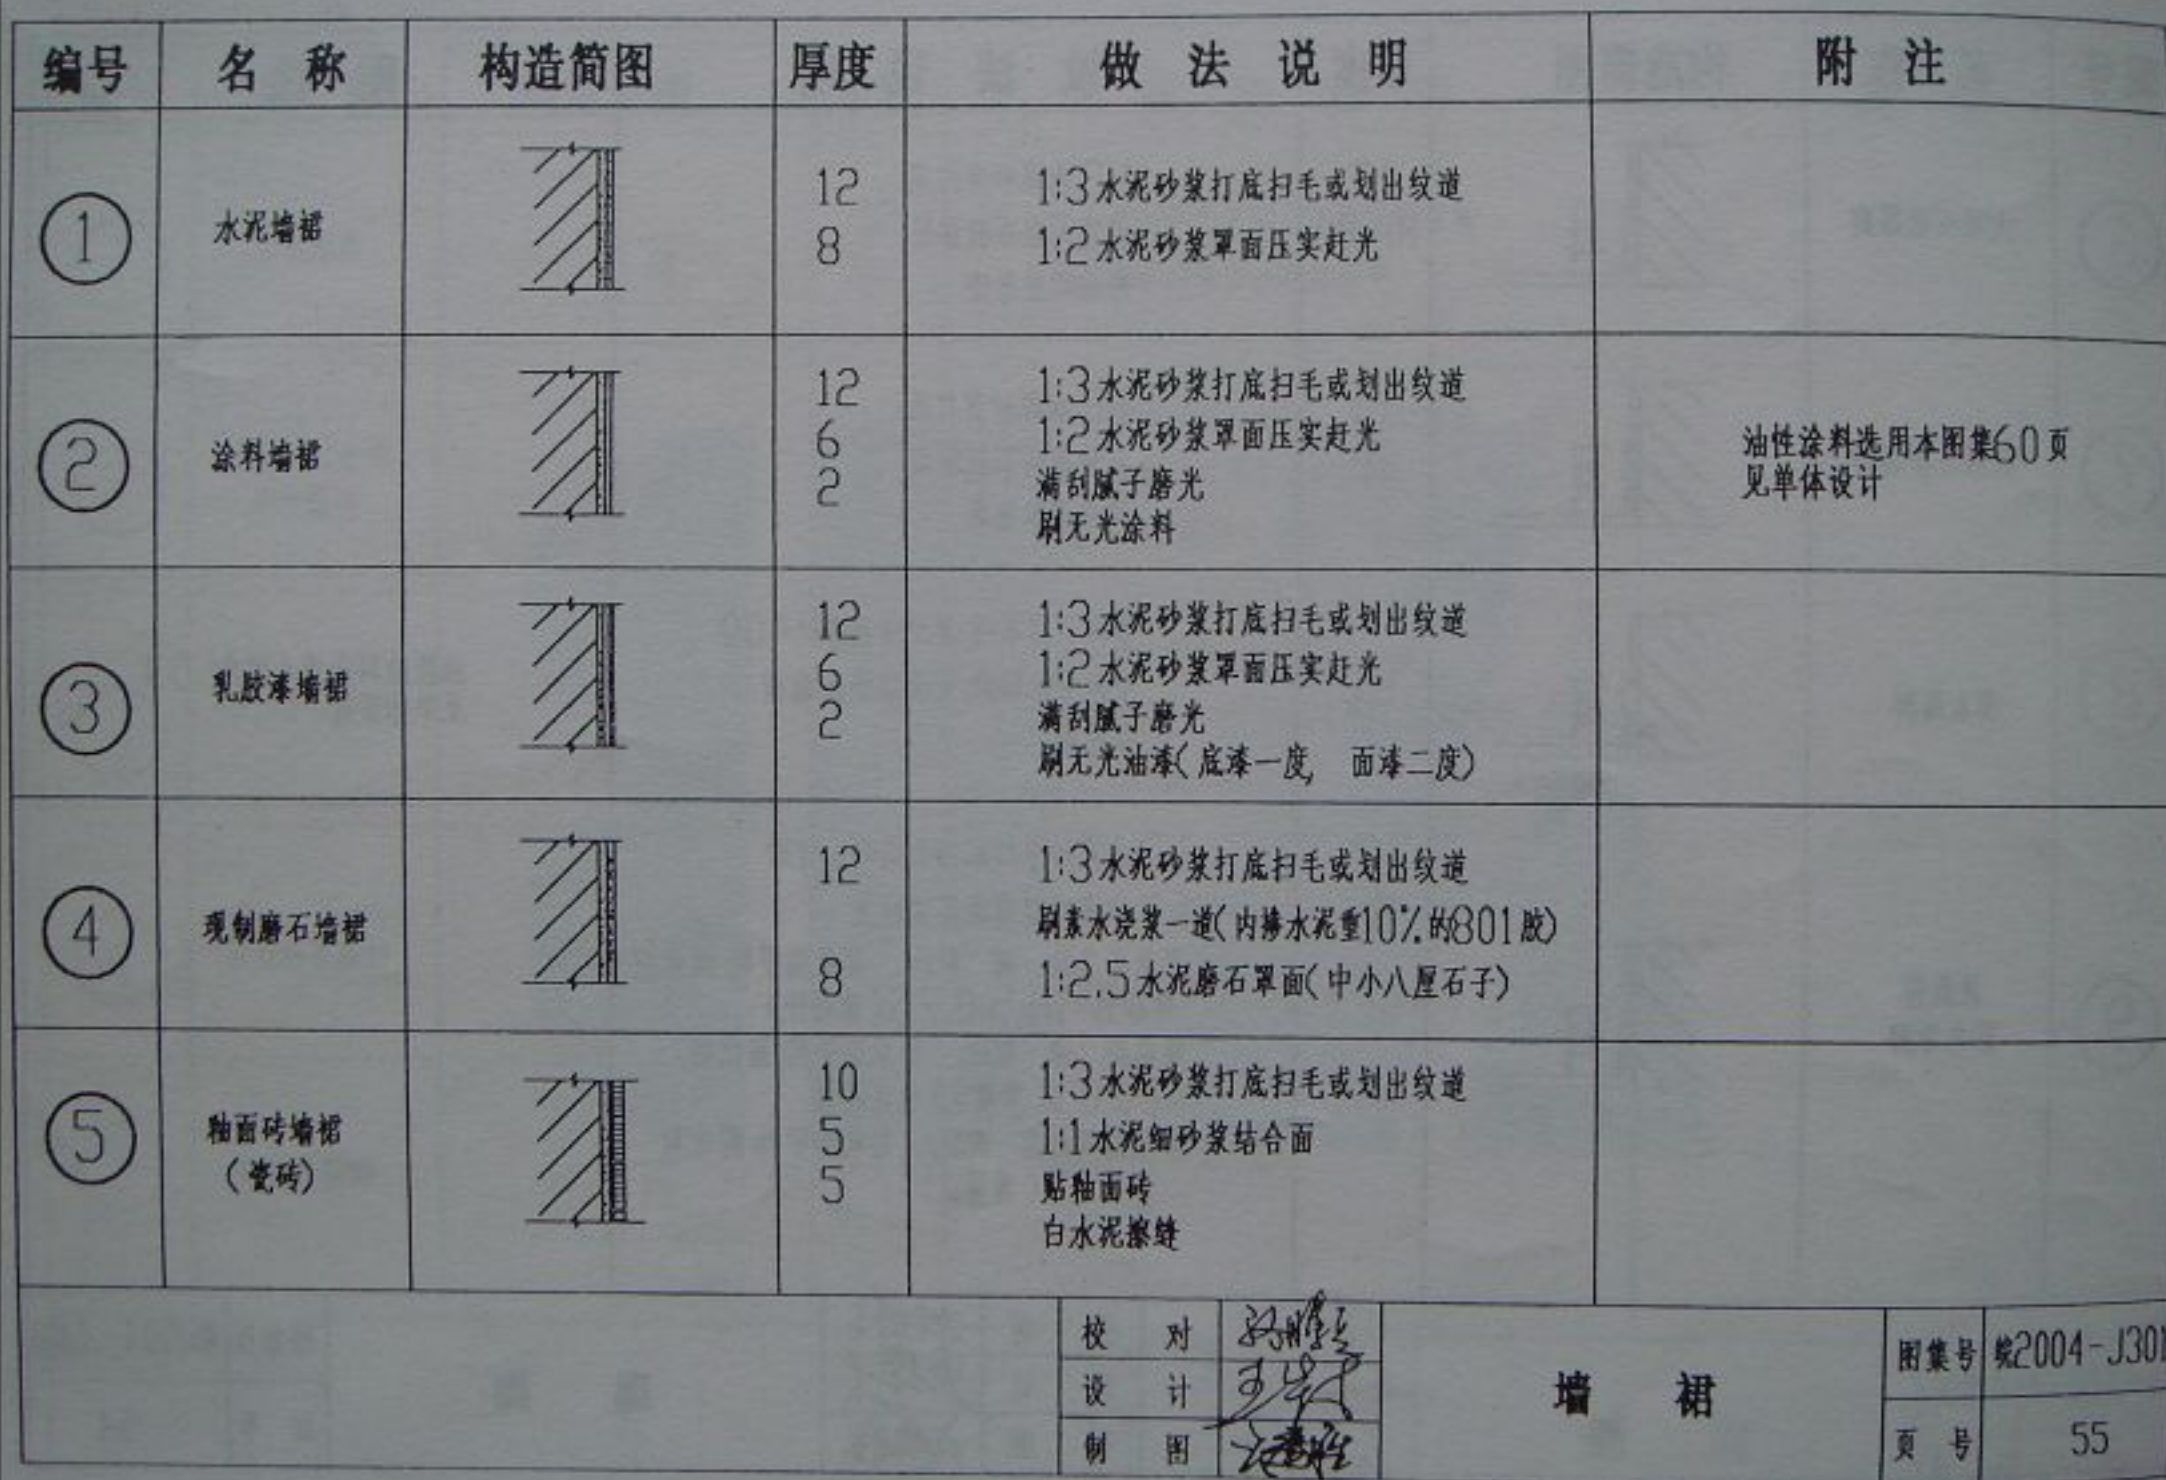 编号 名称 构造简图 厚度 做法说明 附注
1 水泥墙裙
12 1:3水泥砂浆打底扫毛或划出纹道
8 1:2水泥砂浆罩面压实赶光
2 涂料墙裙
12 1:3水泥砂浆打底扫毛或划出纹道
6 1:2水泥砂浆罩面压实赶光
2 满刮腻子磨光
刷无光涂料
油性涂料选用本图集60页
见单体设计
3 乳胶漆墙裙
12 1:3水泥砂浆打底扫毛或划出纹道
6 1:2水泥砂浆罩面压实赶光
2 满刮腻子磨光
刷无光油漆(底漆一度, 面漆二度)
4 现制磨石墙裙
12 1:3水泥砂浆打底扫毛或划出纹道
刷素水浇浆一道(内掺水泥重10%的801胶)
8 1:2.5水泥磨石罩面(中小八厘石子)
5 釉面砖墙裙
(瓷砖)
10 1:3水泥砂浆打底扫毛或划出纹道
5 1:1水泥细砂浆结合面
5 贴釉面砖
白水泥擦缝
校对
设计
制图
墙裙
图集号 皖2004-J301
页号 55